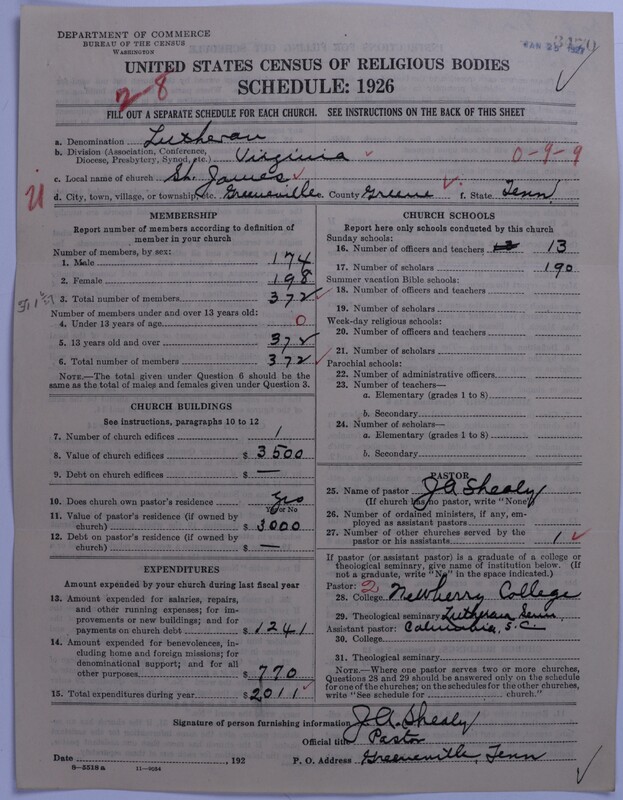 DEPARTMENT OF COMMERCE
BUREAU OF THE CENSUS
WASHINGTON
UNITED STATES CENSUS OF RELIGIOUS BODIES
SCHEDULE: 1926
2-8
FILL OUT A SEPARATE SCHEDULE FOR EACH CHURCH. SEE INSTRUCTIONS ON THE BACK OF THIS SHEET
a. Denomination Lutheran
b. Division (Association, Conference, Diocese, Presbytery, Synod, etc.) Virginia 0-9-9
c. Local name of church St. James
d. City, town, village, or township, etc. Greeneville e. County Greene f. State Tenn.
MEMBERSHIP
Report number of members according to definition of
member in your church
Number of members, by sex:
1. Male 174
2. Female 198
3. Total number of members 372
Number of members under and over 13 years old:
4. Under 13 years of age 0
5. 13 years old and over 372
6. Total number of members 372
NOTE.—The total given under Question 6 should be the
same as the total of males and females given under Question 3.
CHURCH BUILDINGS
See instructions, paragraphs 10 to 12
7. Number of church edifices 1
8. Value of church edifices $ 3500
9. Debt on church edifices $ —
10. Does church own pastor's residence Yes
Yes or No
11. Value of pastor's residence (if owned by
church) $ 3000
12. Debt on pastor's residence (if owned by
church) $ —
EXPENDITURES
Amount expended by your church during last fiscal year
13. Amount expended for salaries, repairs,
and other running expenses; for im-
provements or new buildings; and for
payments on church debt $ 1241
14. Amount expended for benevolences, in-
cluding home and foreign missions; for
denominational support; and for all
other purposes $ 770
15. Total expenditures during year $ 2011
CHURCH SCHOOLS
Report here only schools conducted by this church
Sunday schools:
16. Number of officers and teachers 13
17. Number of scholars 190
Summer vacation Bible schools:
18. Number of officers and teachers
19. Number of scholars
Week-day religious schools:
20. Number of officers and teachers
21. Number of scholars
Parochial schools:
22. Number of administrative officers
23. Number of teachers—
a. Elementary (grades 1 to 8)
b. Secondary
24. Number of scholars—
a. Elementary (grades 1 to 8)
b. Secondary
PASTOR
25. Name of pastor J. A. Shealy
(If church has no pastor, write "None")
26. Number of ordained ministers, if any, em-
ployed as assistant pastors
27. Number of other churches served by the
pastor or his assistants 1
If pastor (or assistant pastor) is a graduate of a college or
theological seminary, give name of institution below. (If
not a graduate, write "No" in the space indicated.)
Pastor: 2
28. College Newberry College
29. Theological seminary Lutheran Semn.
Assistant pastor: Columbia, S.C
30. College
31. Theological seminary
NOTE.—Where one pastor serves two or more churches,
Questions 28 and 29 should be answered only on the schedule
for one of the churches; on the schedules for the other churches,
write "See schedule for church."
Signature of person furnishing information J. A. Shealy
Official title Pastor
Date , 192 P. O. Address Greeneville, Tenn
8—5518 a 11—9034